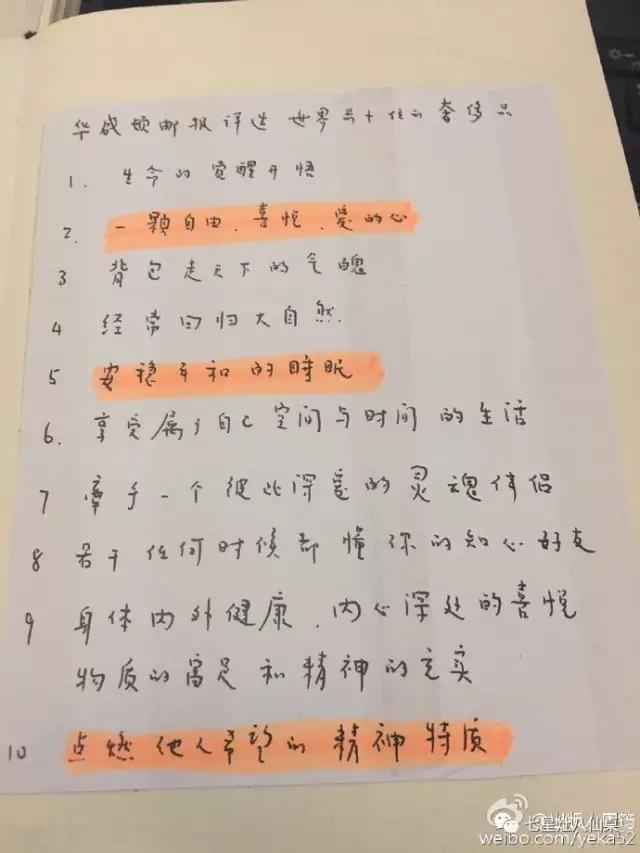 华盛顿邮报评选 世界品十佳的奢侈品
1. 生命的觉醒开悟
2. 一颗自由、喜悦、爱的心
3 背包走天下的气魄
4 经常回归大自然.
5 安稳平和的睡眠
6. 享受属于自己空间与时间的生活
7 牵手一个彼此深爱的灵魂伴侣
8 若干任何时候都懂你的知心好友
9 身体内外健康、内心深处的喜悦
物质的富足和精神的充实
10 点燃他人希望的精神特质
weibo.com/yeka52